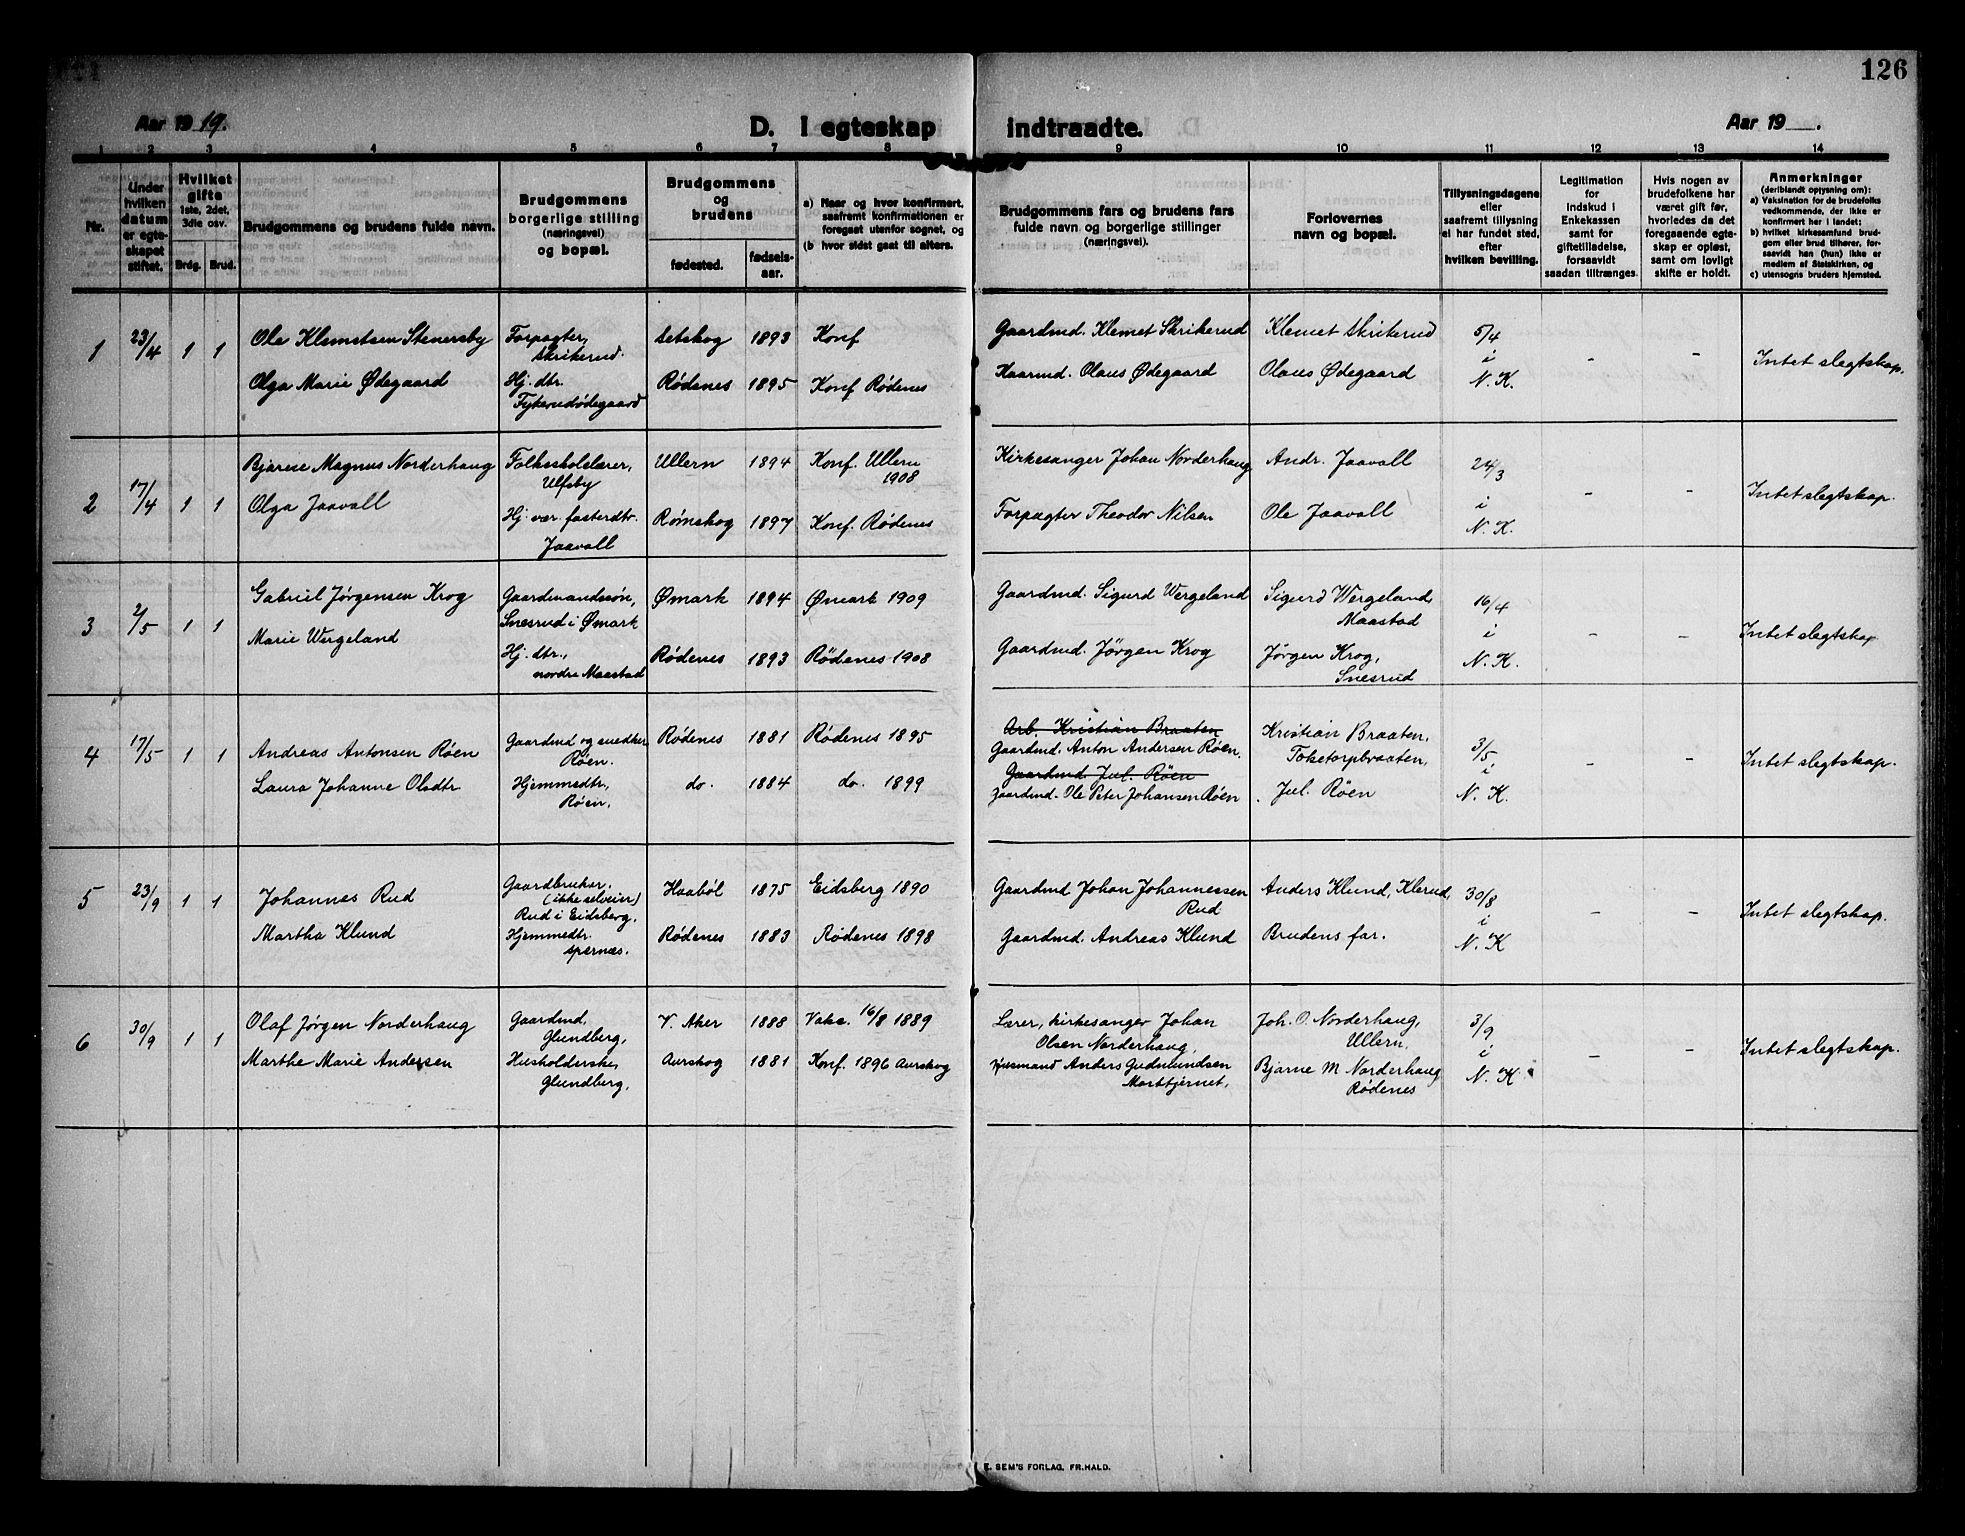 126
Aar 1919.
D. I egteskap indtraadte.
Aar 19    .
1 2 3 4 5 6 7 8 9 10 11 12 13 14
Nr.
Under
hvilken
datum
er egte-
skapet
stiftet.
Hvilket
gifte
1ste, 2det,
3die osv.
Brdg. Brud.
Brudgommens og brudens fulde navn.
Brudgommens
borgerlige stilling
(næringsvei)
og bopæl.
Brudgommens
og
brudens
fødested.
fødsels-
aar.
a) Naar og hvor konfirmert,
saafremt konfirmationen er
foregaat utenfor sognet, og
(b hvor sidst gaat til alters.
Brudgommens fars og brudens fars
fulde navn og borgerlige stillinger
(næringsvei).
Forlovernes
navn og bopæl.
Tillysningsdagene
eller
saafremt tillysning
ei har fundet sted,
efter
hvilken bevilling.
Legitimation
for
indskud i
Enkekassen
samt for
giftetilladelse,
forsaavidt
saadan tiltrænges.
Hvis nogen av
brudefolkene har
været gift før,
hvorledes da det
foregaaende egte-
skap er opløst,
samt om lovligt
skifte er holdt.
Anmerkninger
(deriblandt oplysning om):
a) Vaksination for de brudefolks
vedkommende, der ikke er
konfirmert her i landet;
b) hvilket kirkesamfund brud-
gom eller brud tilhører, for-
saavidt han (hun) ikke er
medlem af Statskirken, og
c) utensogns bruders hjemsted.
1 23/4 1 1
Ole Klemetsen Stenersby
Olga Marie Ødegaard
Forpagter,
Skrikerud.
Hj. dtr.
Fykerudødegaard
Setskog 1893 Konf
Rødenes 1895 Konf Rødenes
Gaardmd. Klemet Skrikerud
Kaarmd. Olaus Ødegaard
Klemet Skrikerud
Olaus Ødegaard
5/4
i
N. K.
- -
Intet slegtskap.
2 17/4 1 1
Bjarne Magnus Norderhaug
Olga Jaavall
Folkeskolelærer,
Ulfsby
Hj. vær. fosterdtr.
Jaavall
Ullern 1894 Konf. Ullern
1908
Rømskog 1897 Konf. Rødenes
Kirkesanger Johan Norderhaug
Forpagter Theodor Nilsen
Andr. Jaavall
Ole Jaavall
24/3
i
N. K.
- -
Intet slegtskap.
3 2/5 1 1
Gabriel Jørgensen Krog
Marie Wergeland
Gaardmandssøn,
Snesrud i Ømark
Hj. dtr.,
nordre Maastad
Ømark 1894 Ømark 1909
Rødenes 1893 Rødenes 1908
Gaardmd. Sigurd Wergeland
Gaardmd. Jörgen Krog
Sigurd Wergeland,
Maastad
Jørgen Krog,
Snesrud
16/4
i
N. K.
- -
Intet slegtskap
4 17/5 1 1
Andreas Antonsen Røen
Laura Johanne Olsdtr
Gaardmd og snedker
Røen.
Hjemmedtr,
Røen.
Rødenes 1881 Rødenes 1895
do. 1884 do. 1899
Arb. Kristian Braaten
Gaardmd. Anton Andersen Røen.
Gaardmd. Jul. Røen
Gaardmd. Ole Peter Johansen Røen
Kristian Braaten,
Toketorpbraaten,
Jul. Røen
3/5
i
N. K.
- -
Intet slegtskap.
5 23/9 1 1
Johannes Rud
Martha Klund
Gaardbruker,
(ikke selveier)
Rud i Eidsberg.
Hjemmedtr.
Spernæs.
Haabøl 1875 Eidsberg 1890
Rødenes 1883 Rødenes 1898
Gaardmd Johan Johannessen
Rud
Gaardmd. Andreas Klund
Anders Klund, Klerud,
Brudens far.
30/8
i
N. K
- -
Intet slegtskap.
6 30/9 1 1
Olaf Jørgen Norderhaug
Marthe Marie Andersen
Gaardmd,
Glundberg,
Husholderske,
Glundberg,
V. Aker 1888 Vakc. 16/8 1889
Aurskog 1881 Konf. 1896 Aurskog
Lærer, kirkesanger Johan
Olsen Norderhaug,
Husmand Anders Gudmundsen
Morttjernet,
Joh. O. Norderhaug,
Ullern.
Bjarne M Norderhaug
Rødenes
3/9
i
N. K
- -
Intet slegtskap.
E. SEM'S FORLAG, FR.HALD.